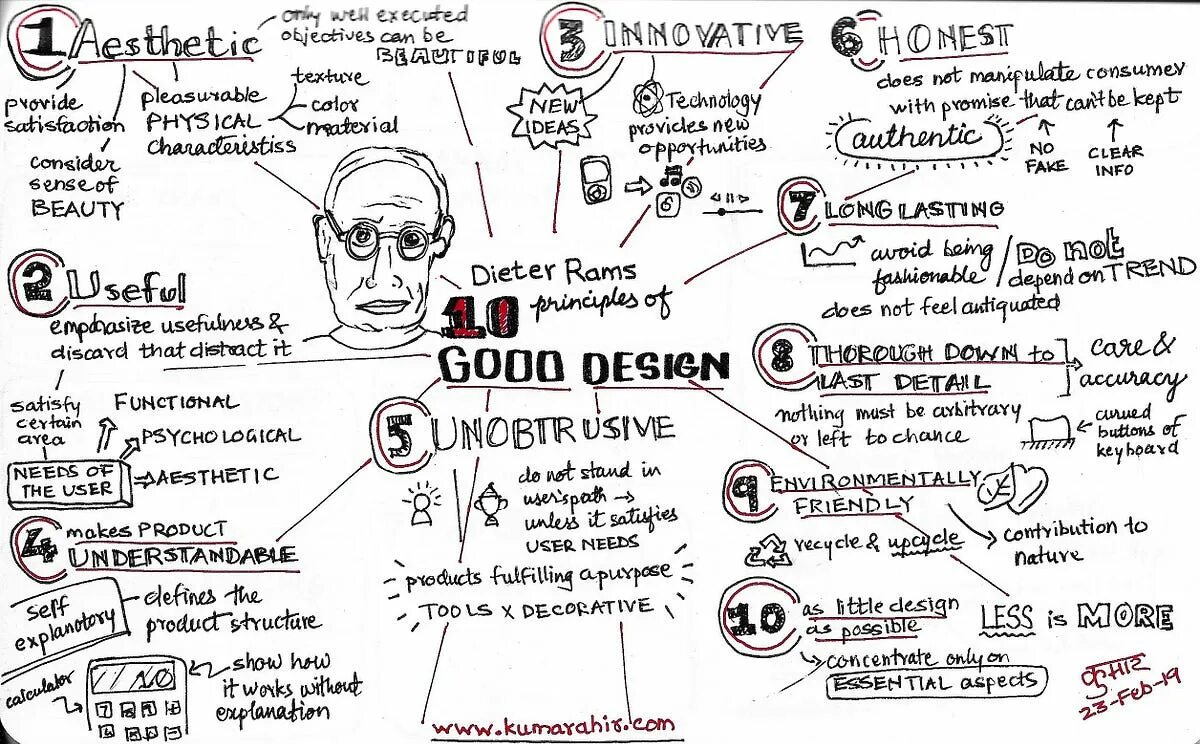 1 Aesthetic
only well executed
objectives can be
BEAUTIFUL
provide
satisfaction
pleasurable
PHYSICAL
characteristiss
texture
color
material
consider
sense of
BEAUTY
2 Useful
emphasize usefulness &
discard that distract it
satisfy
certain
area
FUNCTIONAL
PSYCHOLOGICAL
AESTHETIC
NEEDS OF
THE USER
3 INNOVATIVE
NEW
IDEAS
Technology
provides new
opportunities
Dieter Rams
10 principles of
GOOD DESIGN
4 makes PRODUCT
UNDERSTANDABLE
self
explanotory
defines the
product structure
calculator
show how
it works without
explanation
5 UNOBTRUSIVE
do not stand in
user's path →
unless it satisfies
USER NEEDS
products fulfilling a purpose
TOOLS X DECORATIVE
www.kumarahir.com
6 HONEST
does not manipulate consumer
with promise that can't be kept
authentic
NO
FAKE
CLEAR
INFO
7 LONG LASTING
avoid being
fashionable
/ Do not
depend on TREND
does not feel antiquated
8 THOROUGH DOWN to
LAST DETAIL
care &
accuracy
nothing must be arbitrary
or left to chance
curved
buttons of
keyboard
9 ENVIRONMENTALLY
FRIENDLY
recycle & upcycle
contribution to
nature
10 as little design
as possible
LESS is MORE
concentrate only on
ESSENTIAL aspects
23-Feb-19